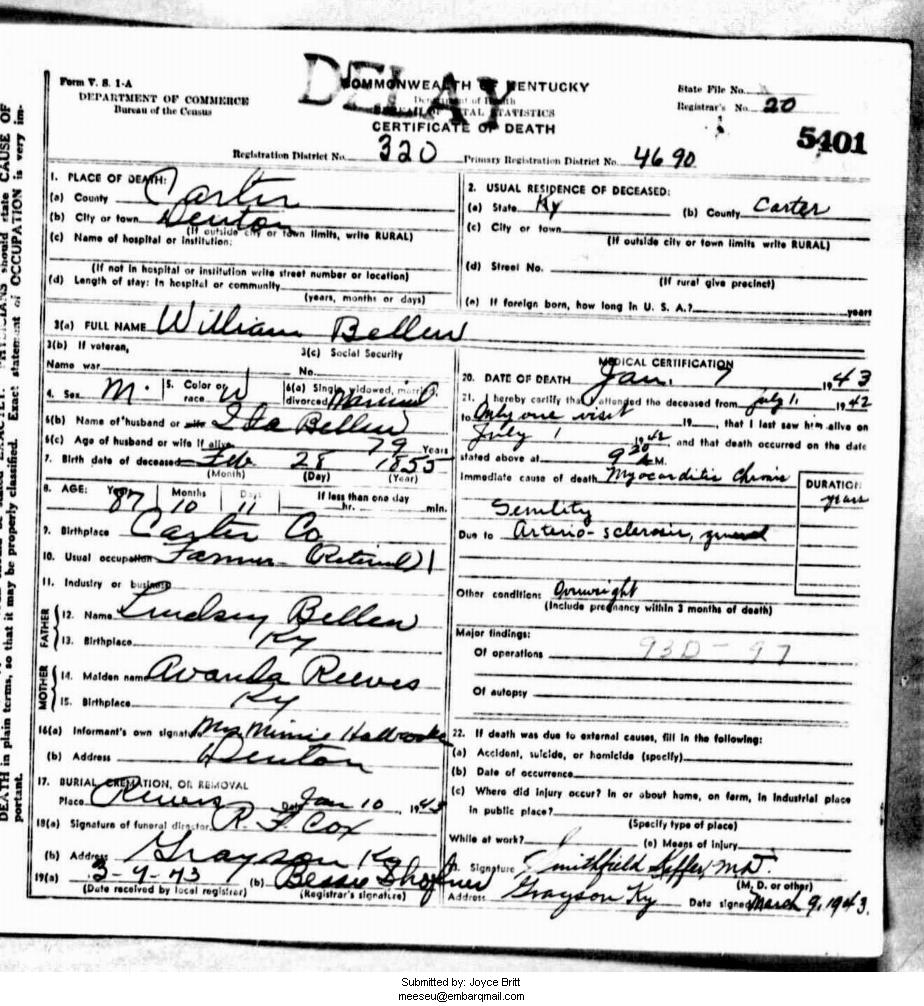 DEATH in plain terms, so that it may be properly classified. Exact statement of OCCUPATION is very important.
DELAY
Form V. S. 1-A
DEPARTMENT OF COMMERCE
Bureau of the Census
COMMONWEALTH OF KENTUCKY
Department of Health
BUREAU OF VITAL STATISTICS
CERTIFICATE OF DEATH
State File No.
Registrar's No. 20
5401
Registration District No. 320 Primary Registration District No. 4690
1. PLACE OF DEATH:
(a) County Carter
(b) City or town Denton
(If outside city or town limits, write RURAL)
(c) Name of hospital or institution:
(If not in hospital or institution write street number or location)
(d) Length of stay: In hospital or community
(years, months or days)
2. USUAL RESIDENCE OF DECEASED:
(a) State Ky (b) County Carter
(c) City or town
(If outside city or town limits write RURAL)
(d) Street No.
(If rural give precinct)
(e) If foreign born, how long in U. S. A.? years
3(a) FULL NAME William Bellew
3(b) If veteran,
Name war
3(c) Social Security
No.
4. Sex M. 5. Color or race W 6(a) Single, widowed, married, divorced Married
6(b) Name of husband or wife Ida Bellew
6(c) Age of husband or wife if alive 79 Years
7. Birth date of deceased Feb 28 1855
(Month) (Day) (Year)
8. AGE: Years Months Days If less than one day
87 10 11 hr. min.
9. Birthplace Carter Co
10. Usual occupation Farmer (Retired) 1
11. Industry or business
FATHER
12. Name Lindsey Bellew
13. Birthplace Ky
MOTHER
14. Maiden name Avanda Reeves
15. Birthplace Ky
16(a) Informant's own signature Mrs Minnie Holbrooke
(b) Address Denton
17. BURIAL, CREMATION, OR REMOVAL
Place Reeves Date Jan 10, 1943
18(a) Signature of funeral director R. F. Cox
(b) Address Grayson Ky
19(a) 3-9-43 (b) Bessie
(Date received by local registrar) (Registrar's signature)
MEDICAL CERTIFICATION
20. DATE OF DEATH Jan. 7 1943
21. I hereby certify that I attended the deceased from July 1, 1942
to Only one visit 19 , that I last saw him alive on
July 1 1942 and that death occurred on the date
stated above at 9 20 A M.
Immediate cause of death Myocarditis Chronic
DURATION
years
Senility
Due to Arterio-sclerosis, general
Other conditions Overweight
(Include pregnancy within 3 months of death)
Major findings:
Of operations 93D-97
Of autopsy
22. If death was due to external causes, fill in the following:
(a) Accident, suicide, or homicide (specify)
(b) Date of occurrence
(c) Where did injury occur? In or about home, on farm, in industrial place
in public place?
(Specify type of place)
While at work? (e) Means of injury
Signature Smithfield Keffer, M.D.
(M. D. or other)
Address Grayson Ky Date signed March 9, 1943.
Submitted by: Joyce Britt
meeseu@embarqmail.com